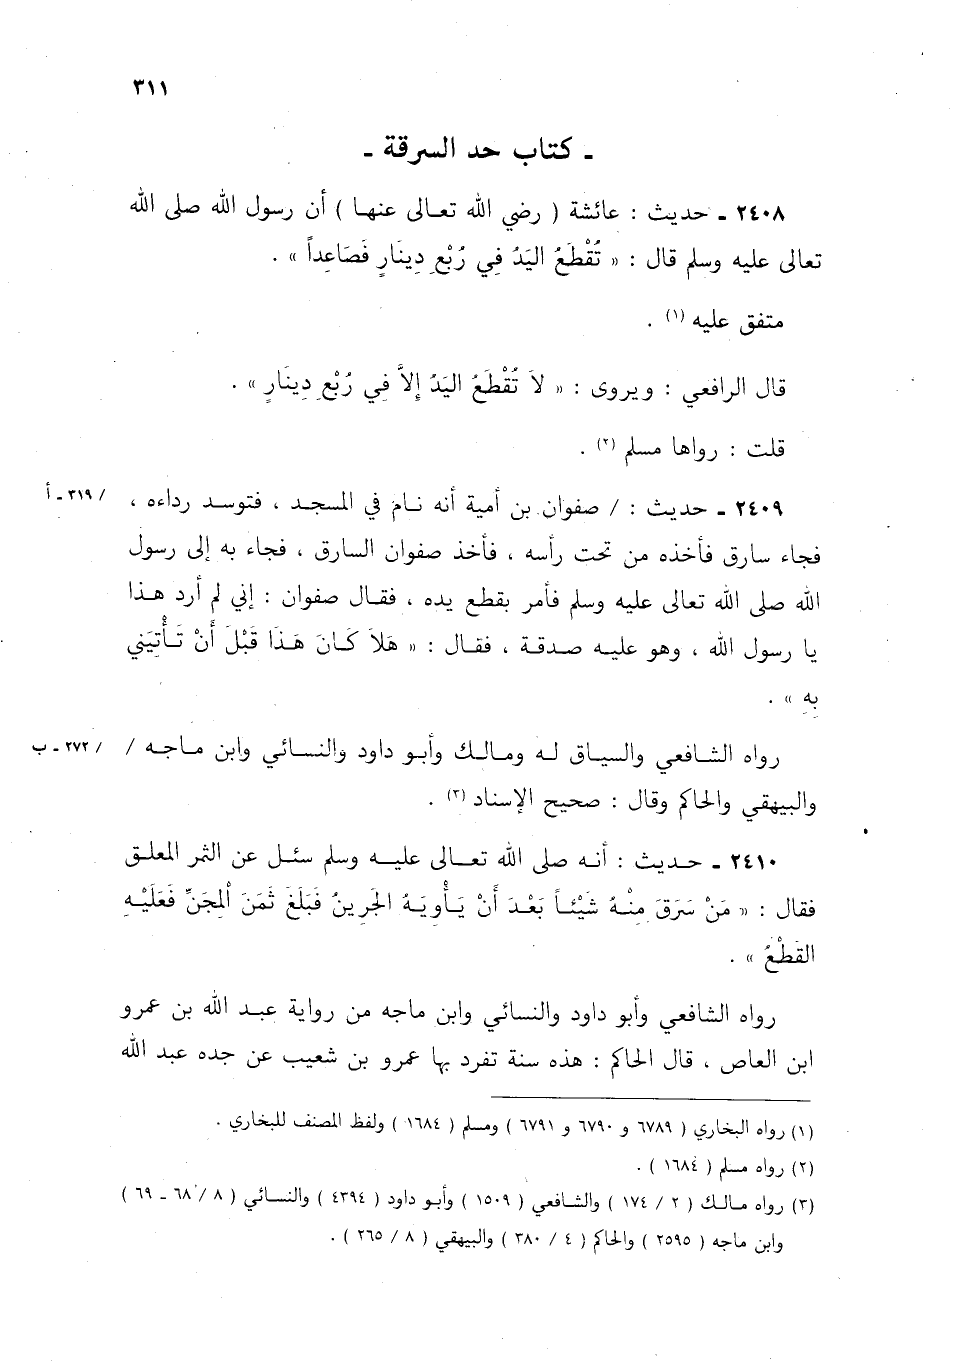 ٣١١
ـ كتاب حد السرقة ـ
٢٤٠٨ ـ حديث : عائشة ( رضي الله تعالى عنها ) أن رسول الله صلى الله
تعالى عليه وسلم قال : « تُقْطَعُ اليَدُ فِي رُبْعِ دِينَارٍ فَصَاعِداً » .
متفق عليه (١) .
قال الرافعي : ويروى : « لاَ تُقْطَعُ اليَدُ إِلاَّ فِي رُبْعِ دِينَارٍ » .
قلت : رواها مسلم (٢) .
٢٤٠٩ ـ حديث : / صفوان بن أمية أنه نام في المسجد ، فتوسد رداءه ، / ٣١٩ ـ أ
فجاء سارق فأخذه من تحت رأسه ، فأخذ صفوان السارق ، فجاء به إلى رسول
الله صلى الله تعالى عليه وسلم فأمر بقطع يده ، فقال صفوان : إني لم أرد هذا
يا رسول الله ، وهو عليه صدقة ، فقال : « هَلاَ كَانَ هَذَا قَبْلَ أَنْ تَأْتِيَنِي
بِهِ » .
رواه الشافعي والسياق له ومالك وأبو داود والنسائي وابن ماجه / / ٢٧٢ ـ ب
والبيهقي والحاكم وقال : صحيح الإسناد (٣) .
٢٤١٠ ـ حديث : أنه صلى الله تعالى عليه وسلم سئل عن الثمر المعلق
فقال : « مَنْ سَرَقَ مِنْهُ شَيْئاً بَعْدَ أَنْ يَأْوِيَهُ الجَرِينُ فَبَلَغَ ثَمَنَ المِجَنِّ فَعَلَيْهِ
القَطْعُ » .
رواه الشافعي وأبو داود والنسائي وابن ماجه من رواية عبد الله بن عمرو
ابن العاص ، قال الحاكم : هذه سنة تفرد بها عمرو بن شعيب عن جده عبد الله
(١) رواه البخاري ( ٦٧٨٩ و ٦٧٩٠ و ٦٧٩١ ) ومسلم ( ١٦٨٤ ) ولفظ المصنف للبخاري .
(٢) رواه مسلم ( ١٦٨٤ ) .
(٣) رواه مالك ( ٢ / ١٧٤ ) والشافعي ( ١٥٠٩ ) وأبو داود ( ٤٣٩٤ ) والنسائي ( ٨ / ٦٨ ـ ٦٩ )
وابن ماجه ( ٢٥٩٥ ) والحاكم ( ٤ / ٣٨٠ ) والبيهقي ( ٨ / ٢٦٥ ) .